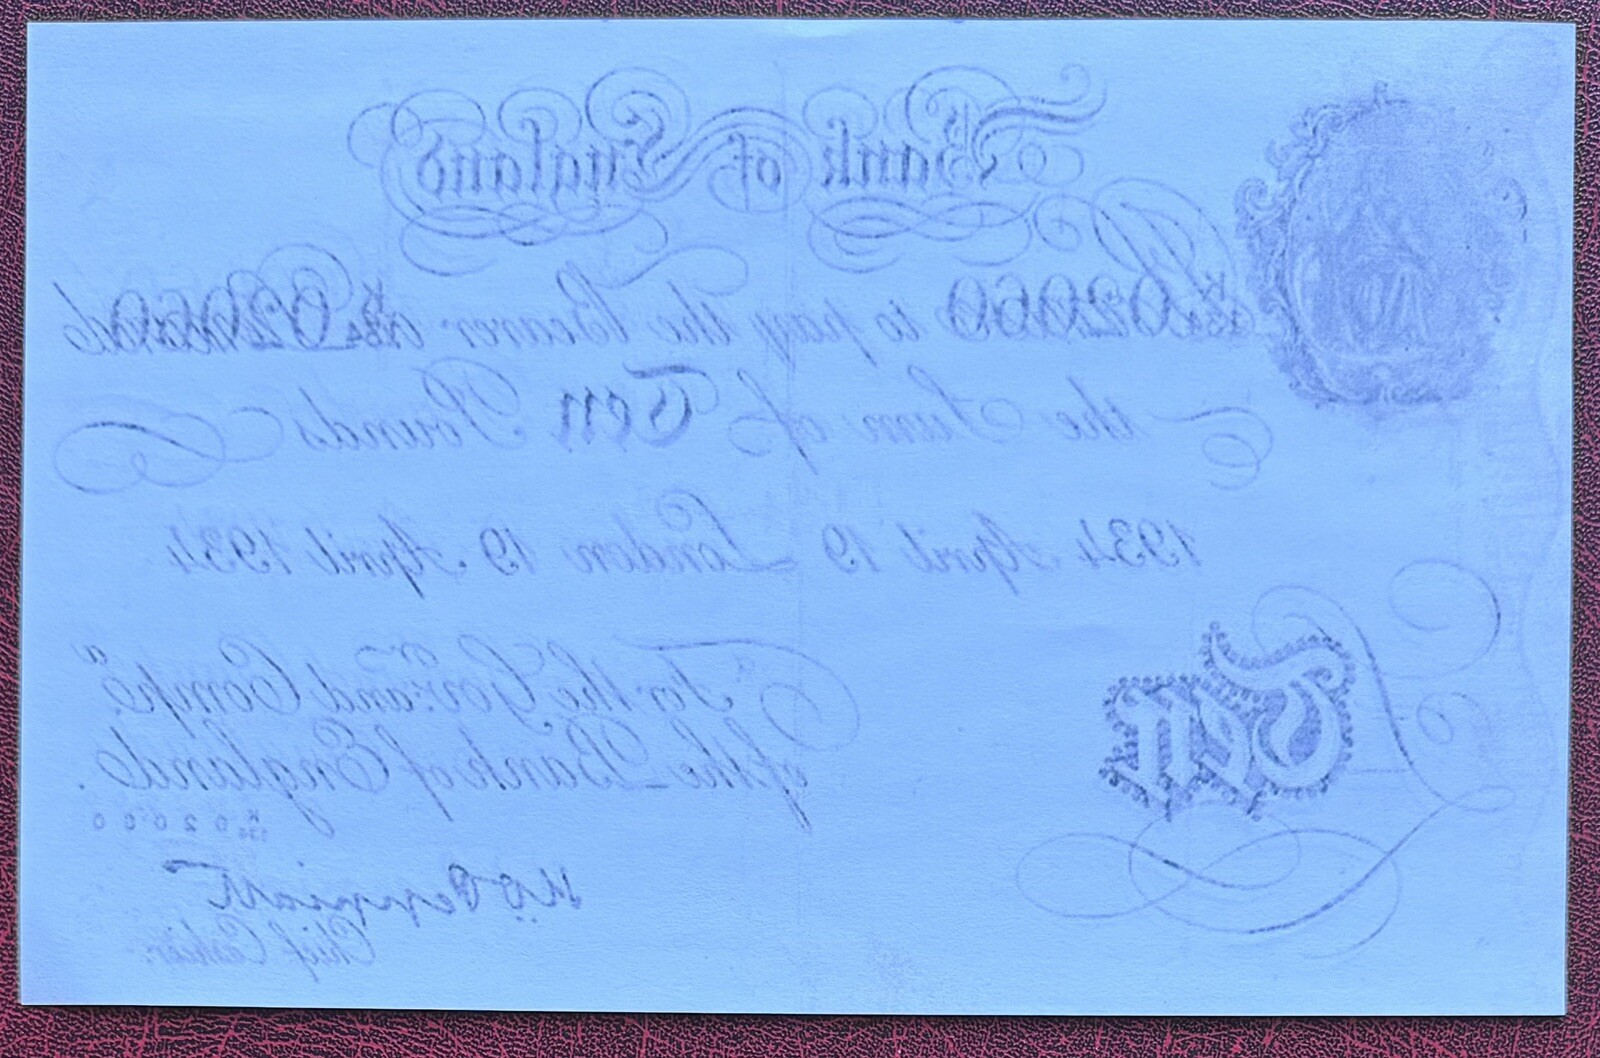 Bank of England
K/134 02060 to pay the Bearer on K/134 02060
the Sum of Ten Pounds
1934 April 19 London 19 April 1934
For the Govr. and Compa.
of the Bank of England.
Ten
K/134 0 2 0 6 0
Chief Cashier.